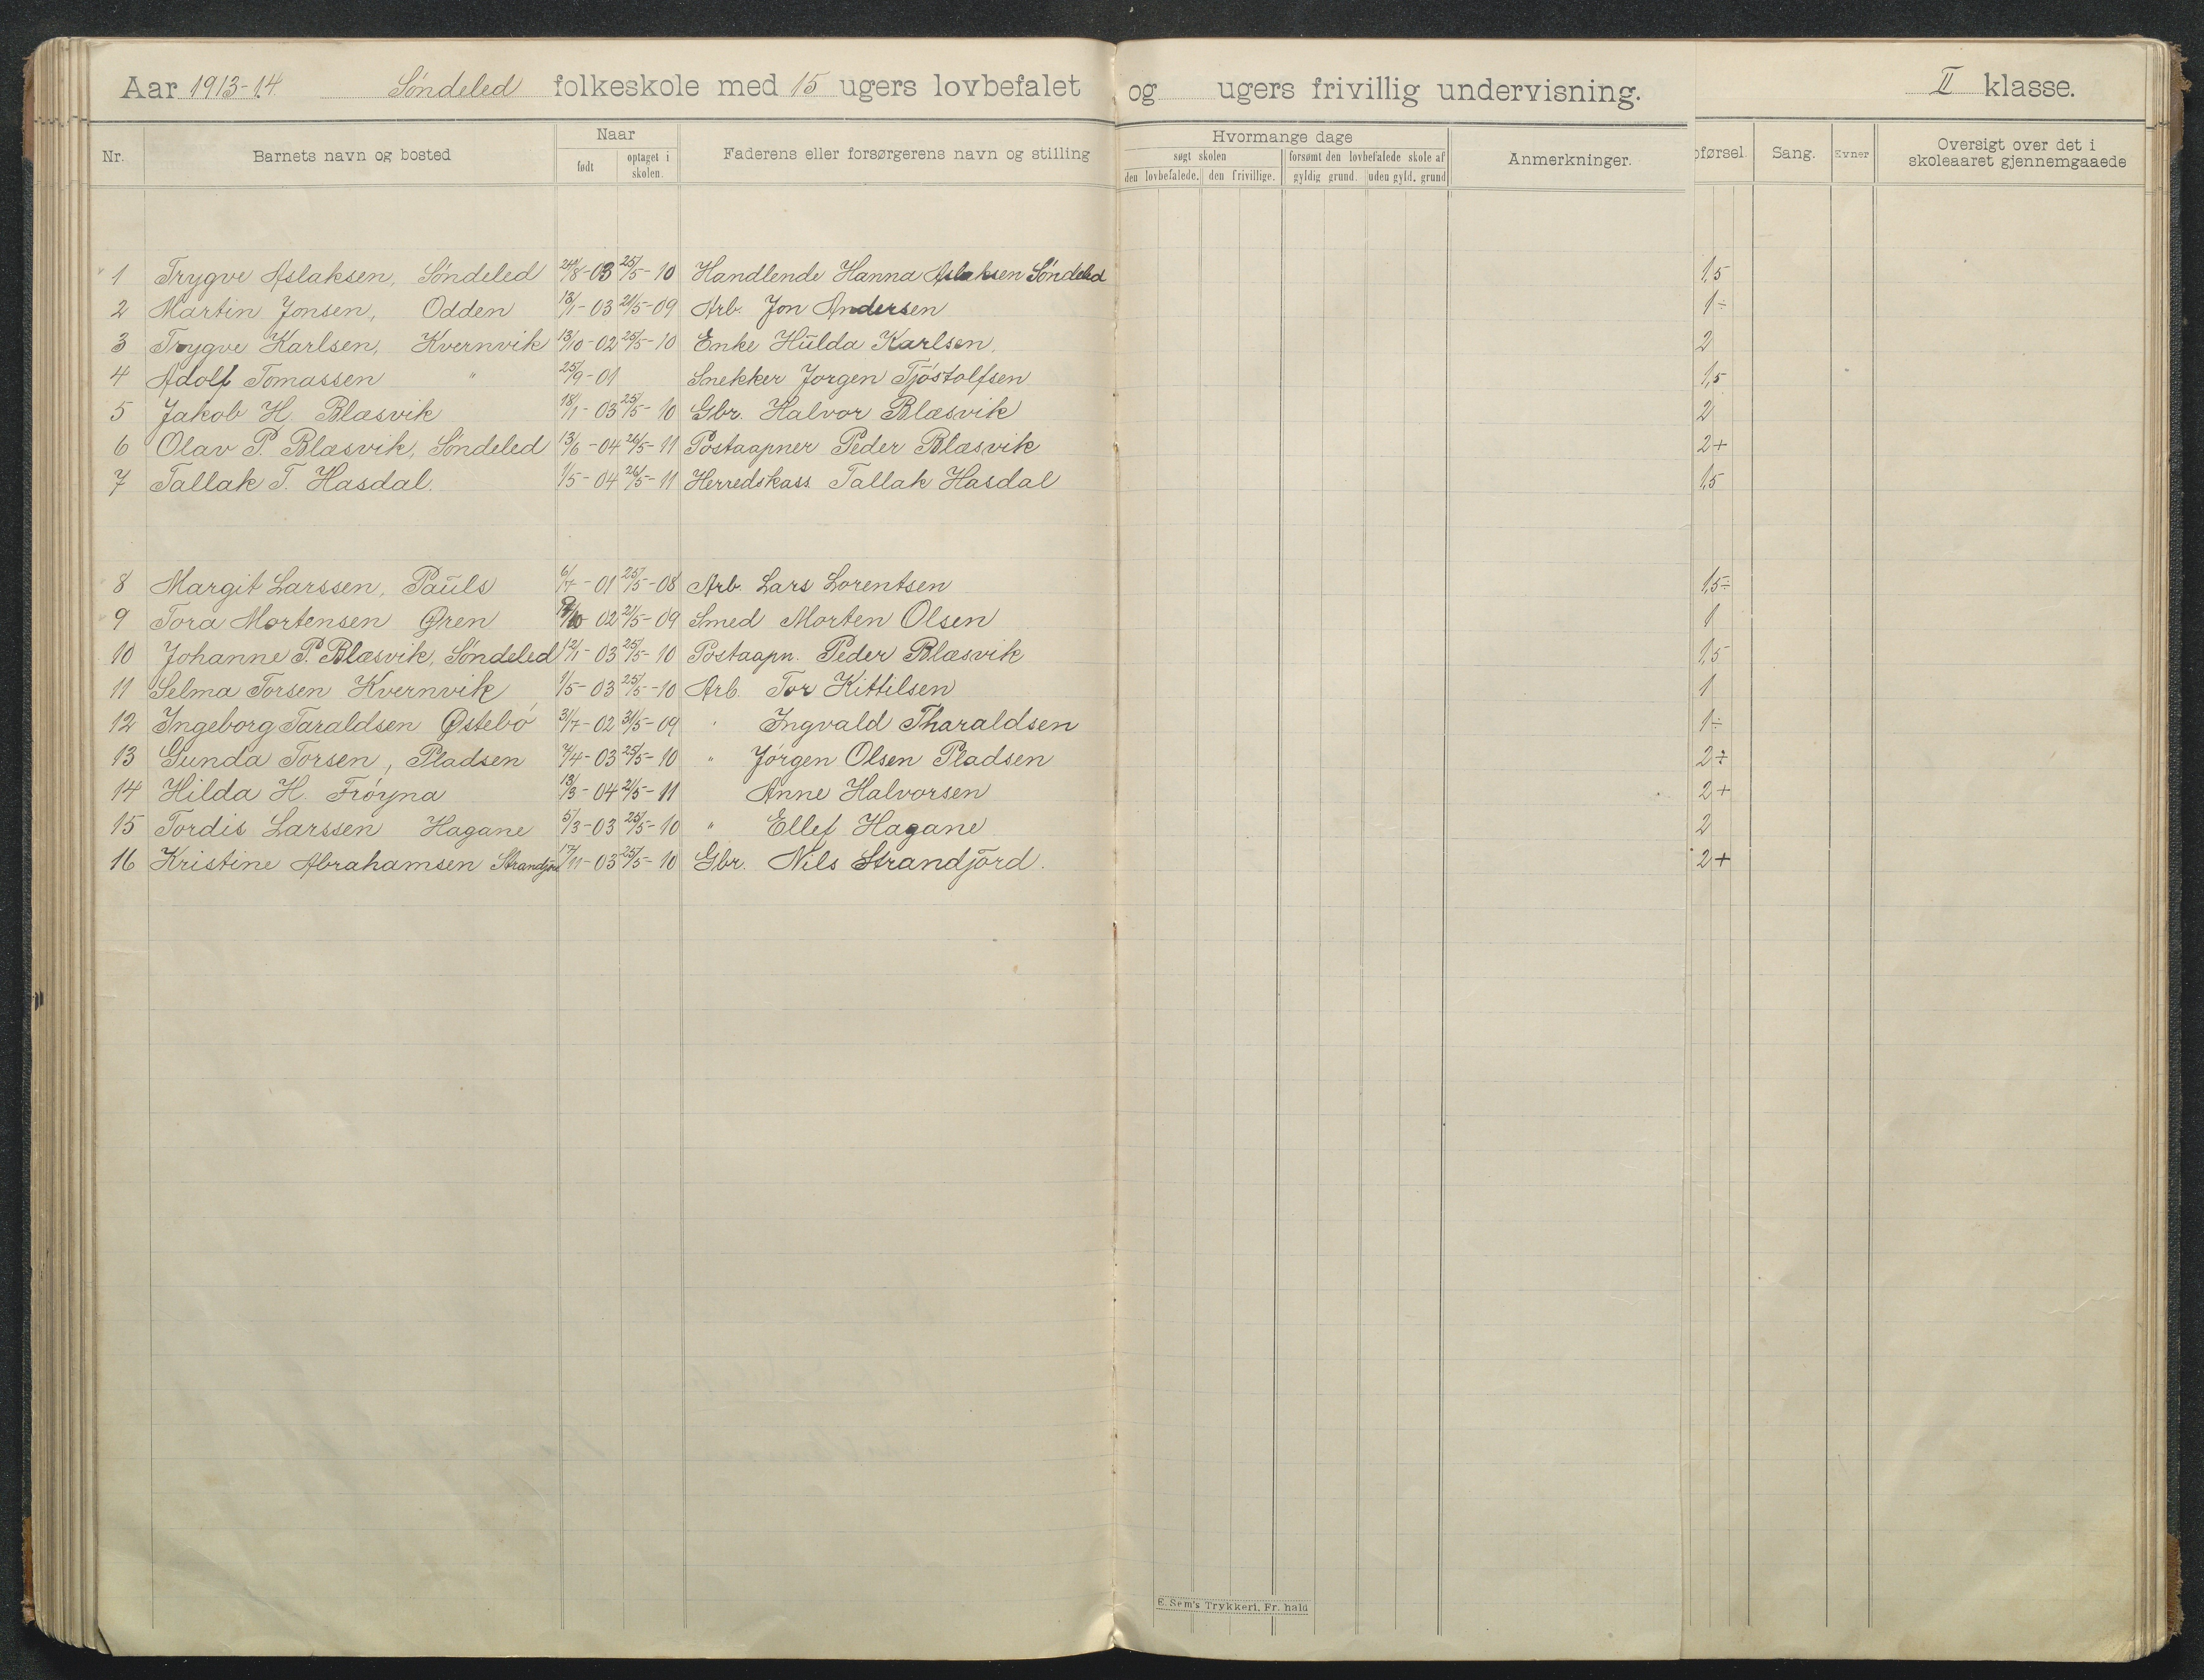 Aar 1913-14. Søndeled folkeskole med 15 ugers lovbefalet og ugers frivillig undervisning. II klasse.
Nr. Barnets navn og bosted Naar født optaget i skolen. Faderens eller forsørgerens navn og stilling Hvormange dage søgt skolen den lovbefalede. den frivillige. forsømt den lovbefalede skole af gyldig grund. uden gyld. grund Anmerkninger. pførsel. Sang. Evner Oversigt over det i skoleaaret gjennemgaaede
1 Trygve Aslaksen, Søndeled 24/8-03 25/5-10 Handlende Hanna Aslaksen Søndeled 1,5
2 Martin Jonsen, Odden 13/1-03 21/5-09 Arb. Jon Andersen 1÷
3 Trygve Karlsen, Kvernvik 13/10-02 25/5-10 Enke Hulda Karlsen. 2
4 Adolf Tomassen " 25/9-01 Snekker Jørgen Tjøstolfsen 1,5
5 Jakob H. Blæsvik 18/1-03 25/5-10 Gbr. Halvor Blæsvik 2
6 Olav P. Blæsvik, Søndeled 13/6-04 26/5-11 Postaapner Peder Blæsvik 2+
7 Tallak T. Hasdal. 1/5-04 26/5-11 Herredskass. Tallak Hasdal 1,5
8 Margit Larssen, Pauls 6/7-01 25/5-08 Arb. Lars Lorentsen 1,5÷
9 Tora Mortensen Øren 02 21/5-09 Smed Morten Olsen 1
10 Johanne P. Blæsvik, Søndeled 12/1-03 25/5-10 Postaapn. Peder Blæsvik 1,5
11 Selma Torsen Kvernvik 1/5-03 25/5-10 Arb. Tor Kittilsen 1
12 Ingeborg Taraldsen Østebø 31/7-02 31/5-09 " Ingvald Tharaldsen 1÷
13 Gunda Torsen, Pladsen 7/4-03 25/5-10 " Jørgen Olsen Pladsen 2÷
14 Hilda H. Frøyna 13/3-04 21/5-11 Anne Halvorsen 2+
15 Tordis Larssen Hagane 5/3-03 25/5-10 " Ellef Hagane 2
16 Kristine Abrahamsen Strandjord 17/11-03 25/5-10 Gbr. Nils Strandjord. 2+
E. Sem's Trykkeri, Fr. hald